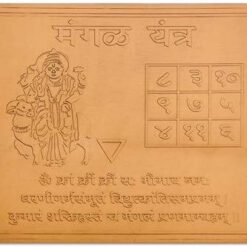 मंगळ यंत्र
८ ३ १०
९ ७ ५
४ ११ ६
ॐ क्रां क्रीं क्रौं सः भौमाय नमः
धरणीगर्भसंभूतं विद्युत्कांतिसमप्रभम् |
कुमारं शक्तिहस्तं च मंगलं प्रणमाम्यहम् |